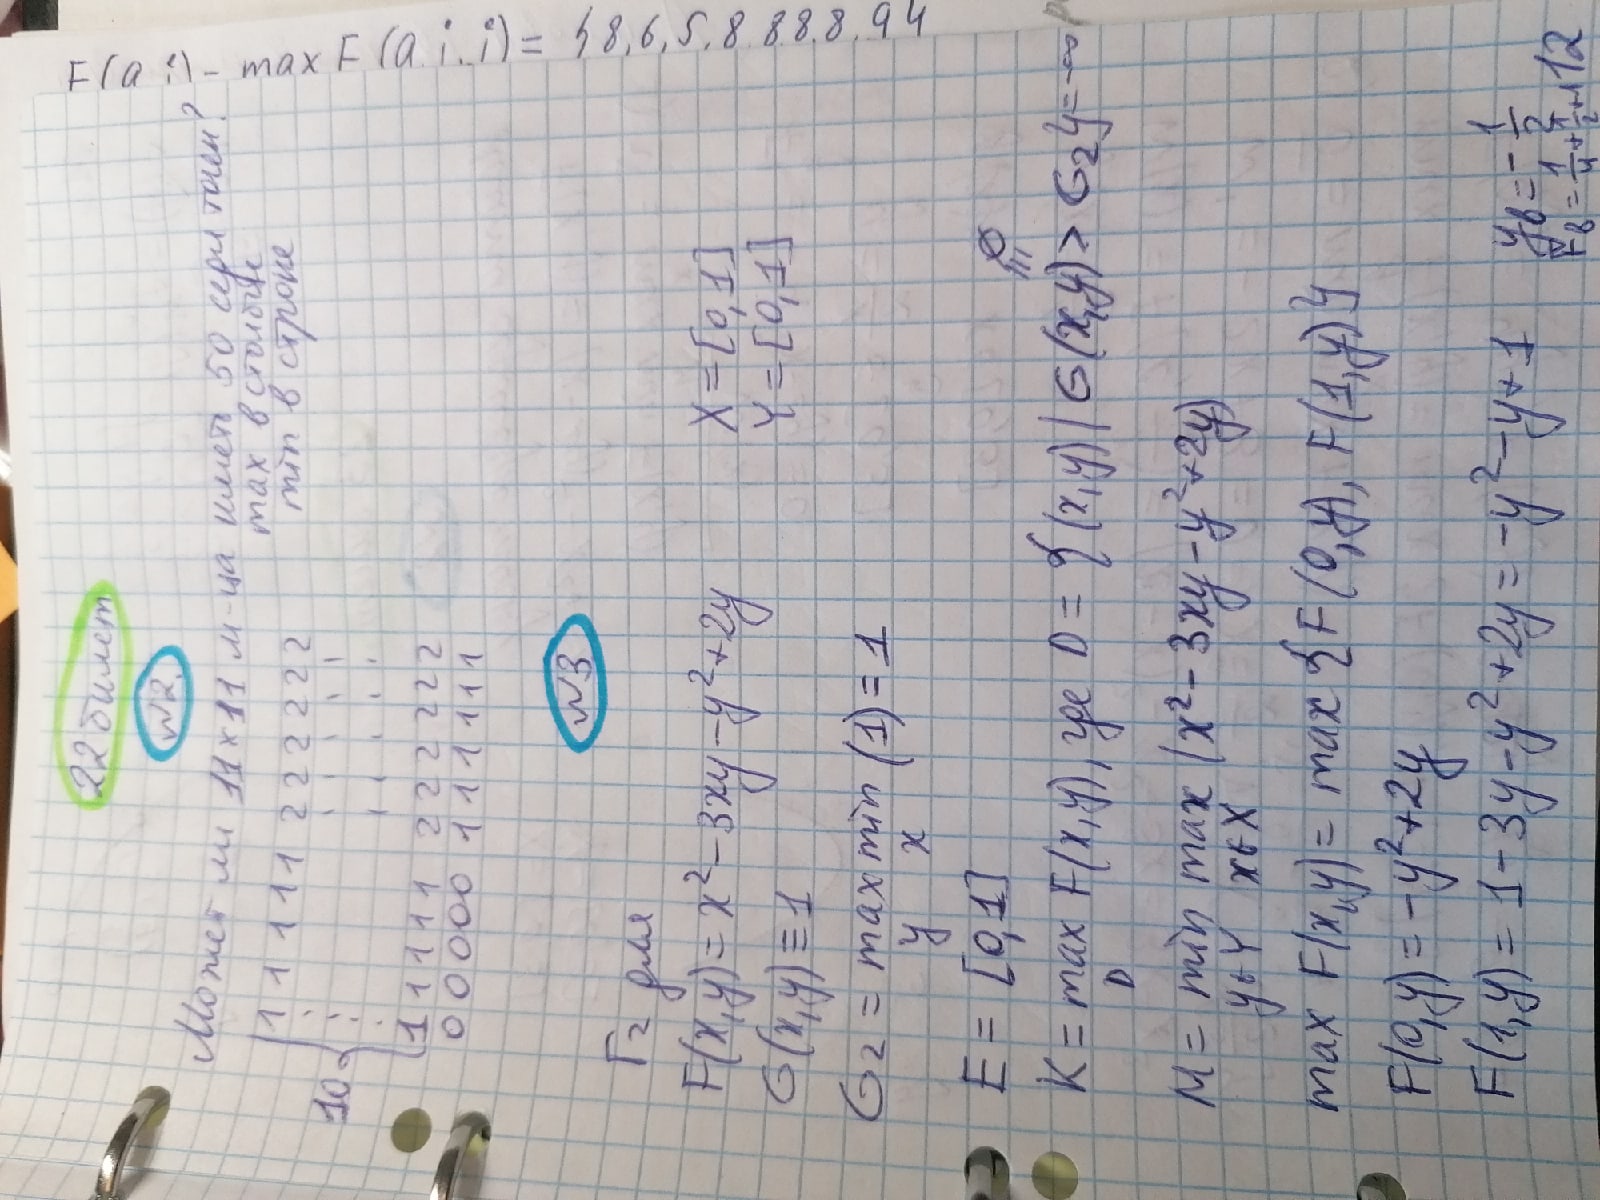 22 билет
№2.
Может ли 11x11 м-ца иметь 50 седл точек?
max в столбце
min в строке
10 { 1 1 1 1 1 1 2 2 2 2 2 2
1 1 1 1 1 2 2 2 2 2 2
0 0 0 0 0 0 1 1 1 1 1 1
№3
Г₂ для
F(x,y) = x² - 3xy - y² + 2y X = [0,1]
G(x,y) ≡ 1 Y = [0,1]
G₂ = max min (1) = 1
y x
E = [0,1]
K = max F(x,y), где D = {(x,y) | G(x,y) > G₂} = -∞
D ∅
M = min max (x² - 3xy - y² + 2y)
y∈Y x∈X
max F(x,y) = max {F(0,y), F(1,y)}
F(0,y) = -y² + 2y
F(1,y) = 1 - 3y - y² + 2y = -y² - y + 1
yв = -1/2
Fв = -1/4 + 1/2 + 1